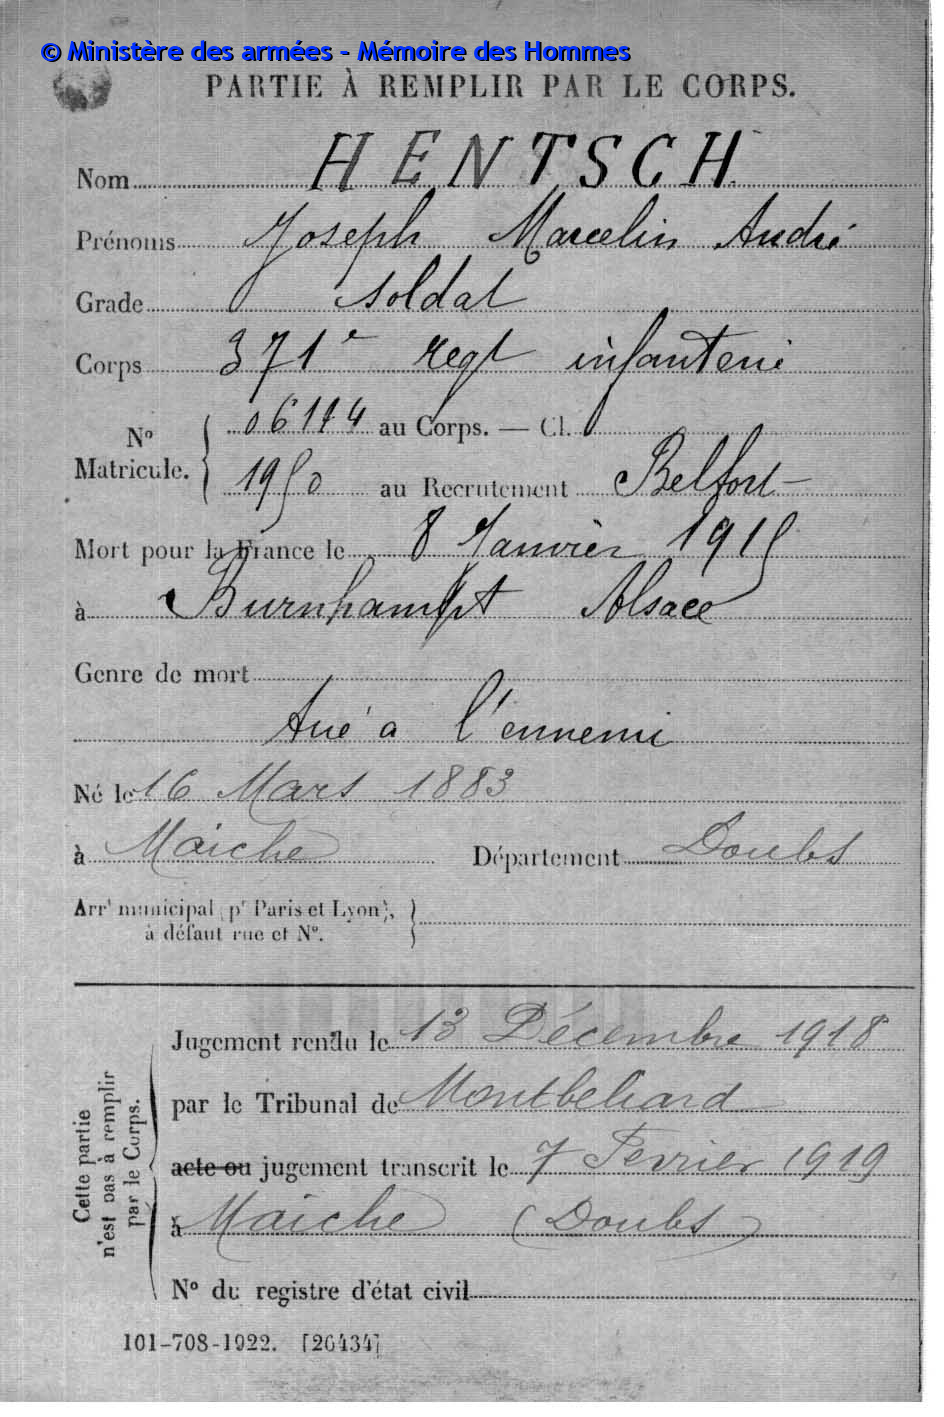 © Ministère des armées - Mémoire des Hommes
PARTIE À REMPLIR PAR LE CORPS.
Nom HENTSCH
Prénoms Joseph Marcelin André
Grade soldat
Corps 371e regt infanterie
No Matricule. 06114 au Corps. — Cl.
1950 au Recrutement Belfort
Mort pour la France le 8 Janvier 1915
à Burnhaupt Alsace
Genre de mort
tué à l'ennemi
Né le 16 Mars 1883
à Maiche Département Doubs
Arrt municipal (pr Paris et Lyon),
à défaut rue et No.
Cette partie n'est pas à remplir par le Corps.
Jugement rendu le 13 Décembre 1918
par le Tribunal de Montbeliard
acte ou jugement transcrit le 7 Fevrier 1919
à Maiche (Doubs)
No du registre d'état civil
101-708-1922. [26434]